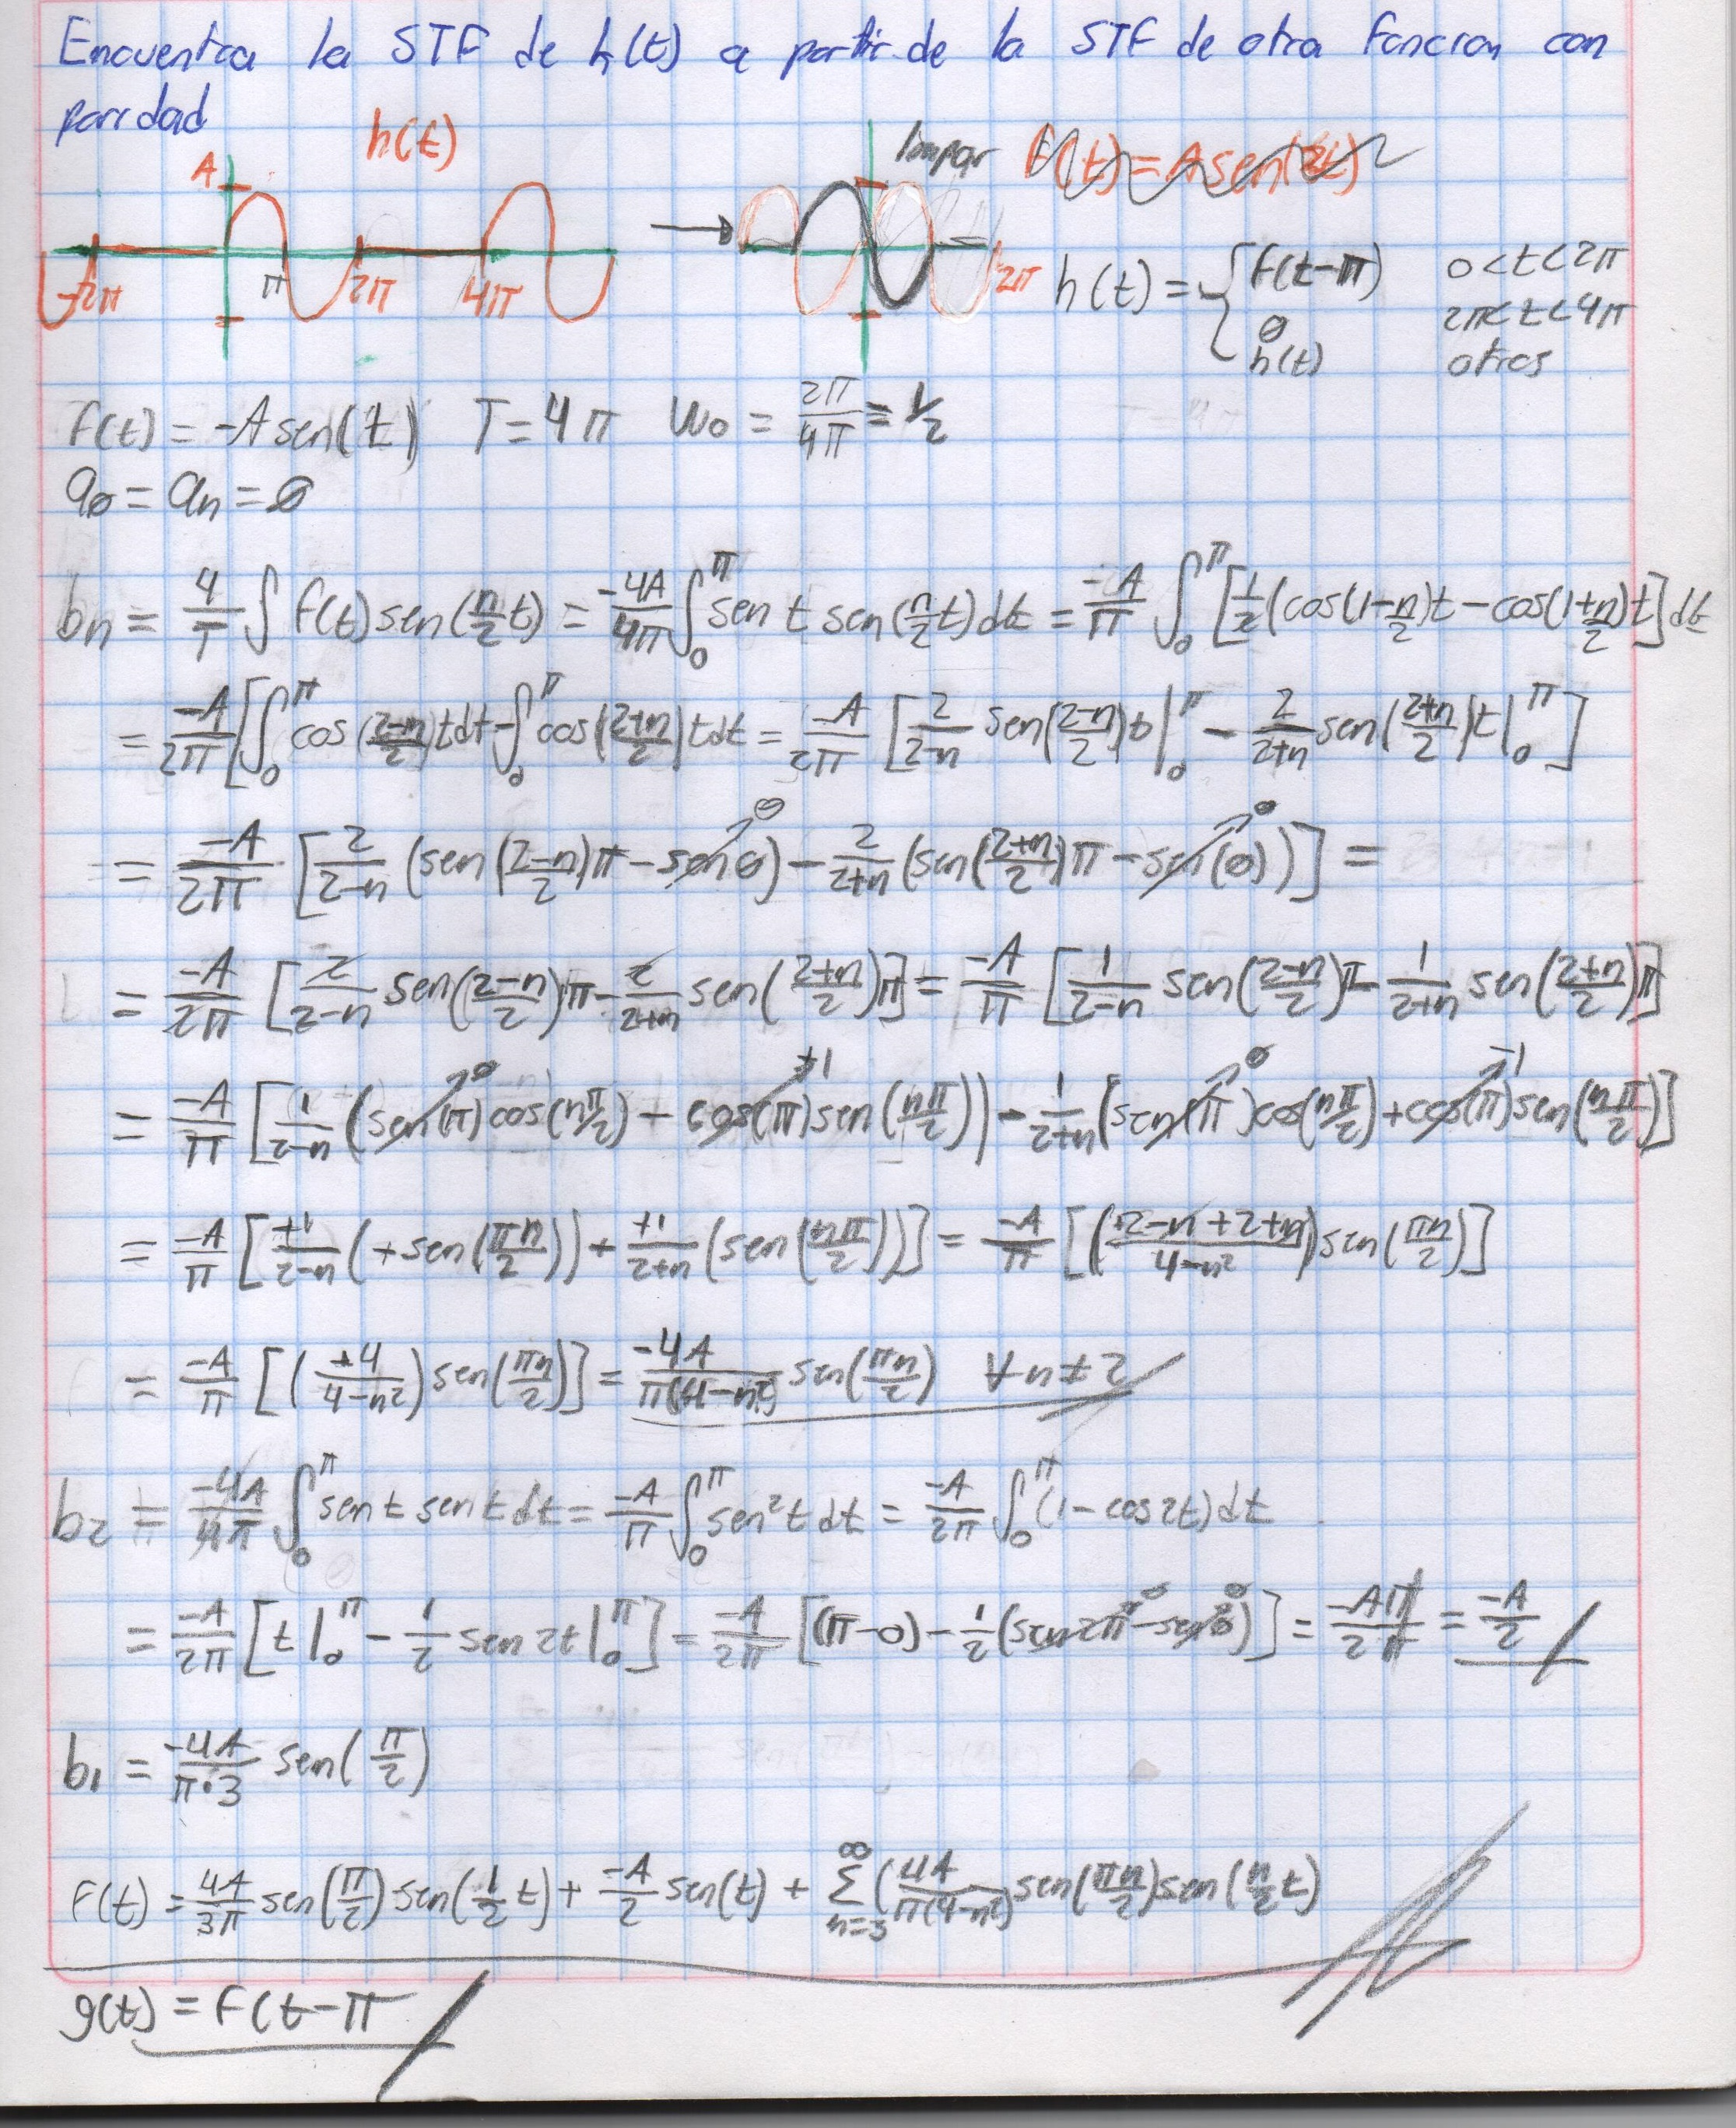 Encuentra la STF de h(t) a partir de la STF de otra funcion con
paridad
h(t)
A
-2π π 2π 4π
Impar
f(t) = A sen(2t)
2π
h(t) = { f(t-π) 0<t<2π
0 2π<t<4π
h(t) otros
f(t) = -A sen(t) T = 4π ω0 = 2π/4π = 1/2
a0 = an = 0
bn = 4/T ∫ f(t) sen(n/2 t) = -4A/4π ∫₀^π sen t sen(n/2 t) dt = -A/π ∫₀^π [1/2 (cos(1-n/2)t - cos(1+n/2)t] dt
= -A/2π [∫₀^π cos(2-n/2)t dt - ∫₀^π cos(2+n/2)t dt = -A/2π [2/2-n sen(2-n/2)t|₀^π - 2/2+n sen(2+n/2)t|₀^π]
= -A/2π [2/2-n (sen(2-n/2)π - sen 0) - 2/2+n (sen(2+n/2)π - sen(0))] =
= -A/2π [2/2-n sen(2-n/2)π - 2/2+n sen(2+n/2)π] = -A/π [1/2-n sen(2-n/2)π - 1/2+n sen(2+n/2)π]
= -A/π [1/2-n (sen(π) cos(nπ/2) - cos(π) sen(nπ/2)) - 1/2+n (sen(π) cos(nπ/2) + cos(π) sen(nπ/2)]
= -A/π [+1/2-n (+sen(πn/2)) + +1/2+n (sen(nπ/2))] = -A/π [(+2-n+2+n/4-n²) sen(πn/2)]
= -A/π [(+4/4-n²) sen(πn/2)] = -4A/π(4-n²) sen(πn/2) ∀ n ≠ 2
b2 = -4A/4π ∫₀^π sen t sen t dt = -A/π ∫₀^π sen² t dt = -A/2π ∫₀^π (1 - cos 2t) dt
= -A/2π [t|₀^π - 1/2 sen 2t|₀^π] = -A/2π [(π-0) - 1/2 (sen 2π - sen 0)] = -Aπ/2π = -A/2
b1 = -4A/π·3 sen(π/2)
f(t) = 4A/3π sen(π/2) sen(1/2 t) + -A/2 sen(t) + ∑_{n=3}^∞ (4A/π(4-n²) sen(πn/2) sen(n/2 t)
g(t) = f(t-π